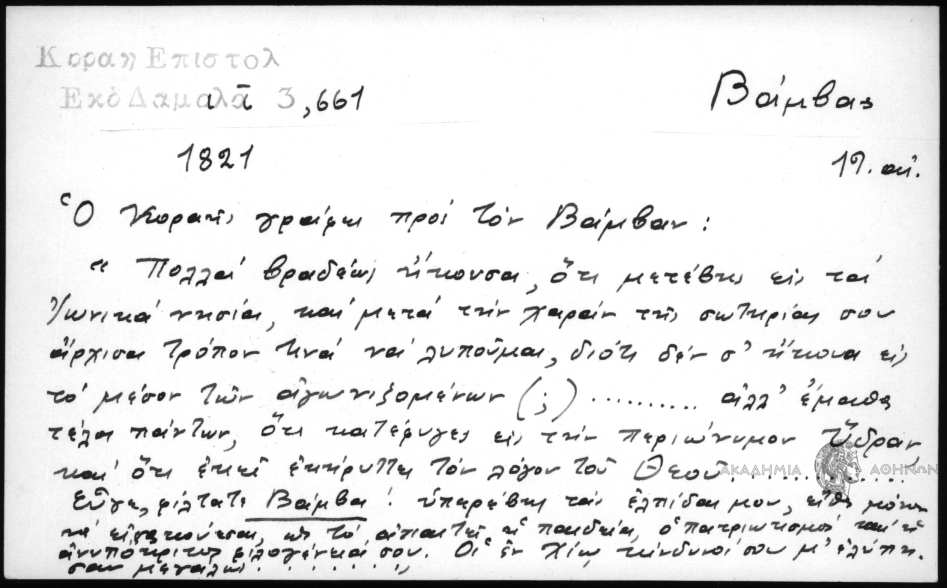 Κοραη Επιστολ
Εκδ Δαμαλα 3, 661
Βάμβας
1821
19. αἰ.
Ὁ Κοραῆς γράφει πρὸς τὸν Βάμβαν:
"Πολλὰ βραδέως ἤκουσα, ὅτι μετέβης εἰς τὰ
Ἰωνικὰ νησία, καὶ μετὰ τὴν χαρὰν τῆς σωτηρίας σου
ἄρχισα τρόπον τινὰ νὰ λυποῦμαι, διότι δὲν σ' ἤκουα εἰς
τὸ μέσον τῶν ἀγωνιζομένων (;) .......... ἀλλ' ἔμαθα
τέλος πάντων, ὅτι κατέφυγες εἰς τὴν περιώνυμον Ὕδραν,
καὶ ὅτι ἐκεῖ ἐκήρυττες τὸν λόγον τοῦ Θεοῦ..........
ΑΚΑΔΗΜΙΑ ΑΘΗΝΩΝ
Εὖγε, φίλτατε Βάμβα! ὑπερέβης τὰς ἐλπίδας μου, εἴθε μόνον
νὰ εἰσακούεσαι, ὡς τὸ ἀπαιτεῖ ἡ παιδεία, ὁ πατριωτισμὸς καὶ ἡ
ἀνυπόκριτος φιλογένειά σου. Οἱ ἐν Χίῳ κίνδυνοί σου μ' ἐλύπη-
σαν μεγάλως........,,